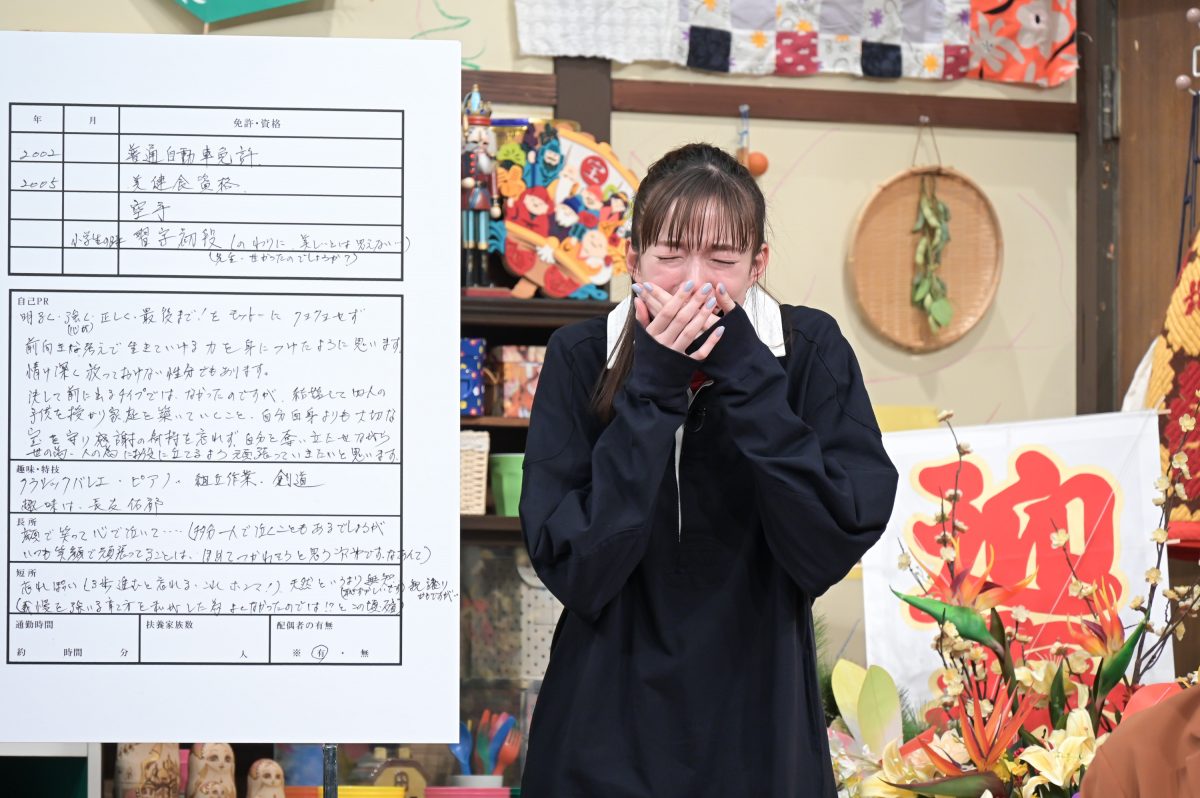 年 月 免許・資格
2002 普通自動車免許
2005 美健食資格
空手
小学生の時 習字初段(のわりに 美しいとは思えない…)
(先生、甘かったのでしょうか?)
自己PR
明るく・強く・正しく・最後まで!をモットーに クヨクヨせず
(心の)
前向きな考えで生きていける力を身につけたように思います。
情け深く放っておけない性分でもあります。
決して前に出るタイプでは、なかったのですが、結婚して四人の
子供を授かり家庭を築いていくこと、自分自身よりも大切な
宝を守り感謝の気持を忘れず自分を奮い立たせながら
世の為、人の為にお役に立てるよう頑張っていきたいと思います。
趣味・特技
クラシックバレエ・ピアノ、組立作業、剣道
趣味は、長友佑都
長所
顔で笑って心で泣いて……(多分一人で泣くこともあるでしょうが
いつも笑顔で頑張ってることは、ほめてつかわそうと思う次第です。なあんて)
短所
忘れぽい(3歩進むと忘れる・これホンマ!)天然というより無知
(はずかしいです)親譲り
(我慢を強いる育て方を私がした為よくなかったのでは!?とこの頃
通勤時間 扶養家族数 配偶者の有無
約 時間 分 人 ※ 有 ・ 無
宝
迎